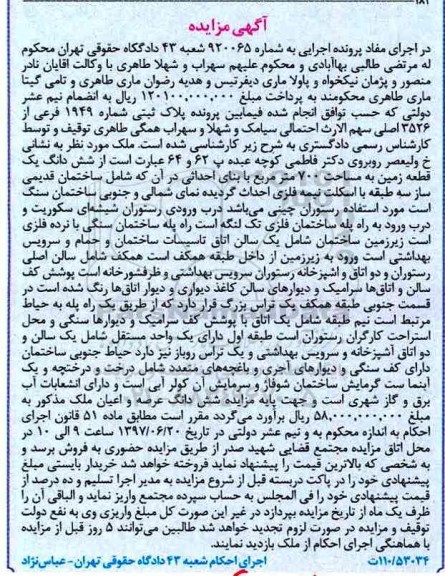 آگهی مزایده
در اجرای مفاد پرونده اجرایی به شماره ۹۲۰۰۶۵ شعبه ۴۳ دادگکاه حقوقی تهران محکوم
له مرتضی طالبی بهاآبادی و محکوم علیهم سهراب و شهلا طاهری با وکالت اقایان نادر
منصور و پژمان نیکخواه و پاولا ماری دیفرتیس و هدیه رضوان ماری طاهری و تامی گیتا
ماری طاهری محکومند به پرداخت مبلغ ۱۲۰۱۰۰,۰۰۰,۰۰۰ ریال به انضمام نیم عشر
دولتی که حسب توافق انجام شده فیمابین پرونده پلاک ثبتی شماره ۱۹۴۹ فرعی از
۳۵۲۶ اصلی سهم الارث احتمالی سیامک و شهلا و سهراب همگی طاهری توقیف و توسط
کارشناس رسمی دادگستری به شرح زیر کارشناسی شده است. ملک مورد نظر به نشانی
خ ولیعصر روبروی دکتر فاطمی کوچه عبده پ ۶۲ و ۶۴ عبارت است از شش دانگ یک
قطعه زمین به مساحت ۷۰۰ متر مربع با بنای احداثی در آن که شامل ساختمان قدیمی
ساز سه طبقه با اسکلت نیمه فلزی احداث گردیده نمای شمالی و جنوبی ساختمان سنگ
است مورد استفاده رستوران چینی می‌باشد درب ورودی رستوران شیشه‌ای سکوریت و
درب ورود به راه پله ساختمان فلزی تک لنگه است راه پله ساختمان سنگی با نرده فلزی
است زیرزمین ساختمان شامل یک سالن اتاق تاسیسات ساختمان و حمام و سرویس
بهداشتی است ورود به زیرزمین از داخل طبقه همکف است همکف شامل سالن اصلی
رستوران و دو اتاق و اشپزخانه رستوران سرویس بهداشتی و ظرفشورخانه است پوشش کف
سالن و اتاق‌ها سرامیک و دیوارهای سالن کاغذ دیواری و دیوار اتاق‌ها رنگ شده است در
قسمت جنوبی طبقه همکف یک تراس بزرگ قرار دارد که از طریق یک راه پله به حیاط
مرتبط است نیم طبقه شامل یک اتاق با پوشش کف سرامیک و دیوارها سنگی و محل
استراحت کارگران رستوران است طبقه اول دارای یک واحد مستقل شامل یک سالن و
دو اتاق آشپزخانه و سرویس بهداشتی و یک تراس روباز نیز دارد حیاط جنوبی ساختمان
دارای کف سنگی و دیوارهای آجری و باغچه‌های متعدد شامل درخت و درختچه و یک
آبنما ست گرمایش ساختمان شوفاژ و سرمایش آن کولر آبی است و دارای انشعابات آب
برق و گاز شهری است و جهت پایه مزایده شش دانگ عرصه و اعیان ملک مذکور به
مبلغ ۵۸۰,۰۰۰,۰۰۰,۰۰۰ ریال برآورد می‌گردد مقرر است مطابق ماده ۵۱ قانون اجرای
احکام به اندازه محکوم به و نیم عشر دولتی در تاریخ ۱۳۹۷/۰۶/۲۰ ساعت ۹ الی ۱۰ در
محل اتاق مزایده مجتمع قضایی شهید صدر از طریق مزایده حضوری به فروش برسد و
به شخصی که بالاترین قیمت را پیشنهاد نماید فروخته خواهد شد خریدار بایستی مبلغ
پیشنهادی خود را در پاکت دربسته قبل از شروع مزایده به مدیر اجرا تسلیم و ده درصد از
قیمت پیشنهادی خود را فی المجلس به حساب سپرده مجتمع واریز نماید و الباقی آن را
ظرف یک ماه از تاریخ مزایده بپردازد در غیر این صورت کل مبلغ واریزی وی به نفع دولت
توقیف و مزایده در صورت لزوم تجدید خواهد شد طالبین می‌توانند ۵ روز قبل از مزایده
با هماهنگی اجرای احکام از ملک بازدید نمایند.
۱۱۰/۵۳۰۳۴ت اجرای احکام شعبه ۴۳ دادگاه حقوقی تهران - عباس‌نژاد